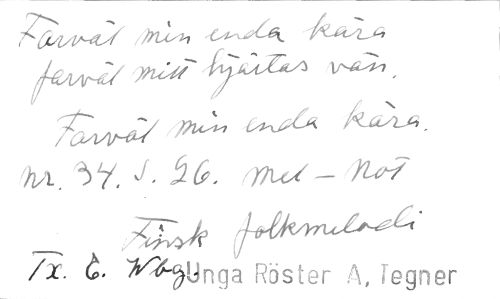 Farväl min enda kära
farväl mitt hjärtas vän.
Farväl min enda kära.
nr. 34. S. 26. Mel - Not
Finsk folkmelodi
Tx. E. Wbg. Unga Röster A, Tegner